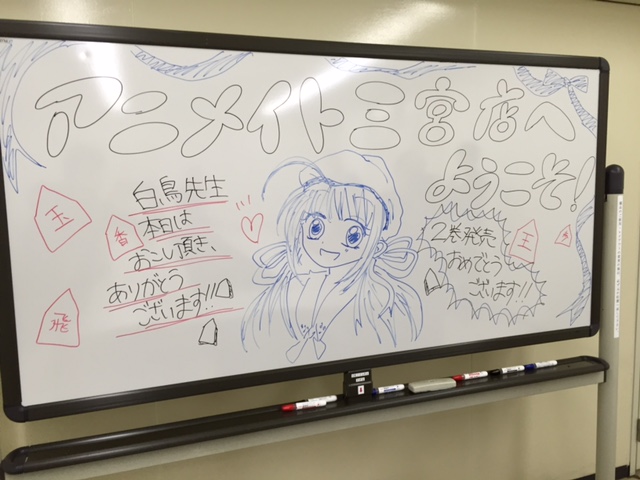 アニメイト三宮店へ
ようこそ!
白鳥先生
本日は
おこし頂き、
ありがとう
ございます!!
2巻発売
おめでとう
ございます!!
玉
香
飛
王